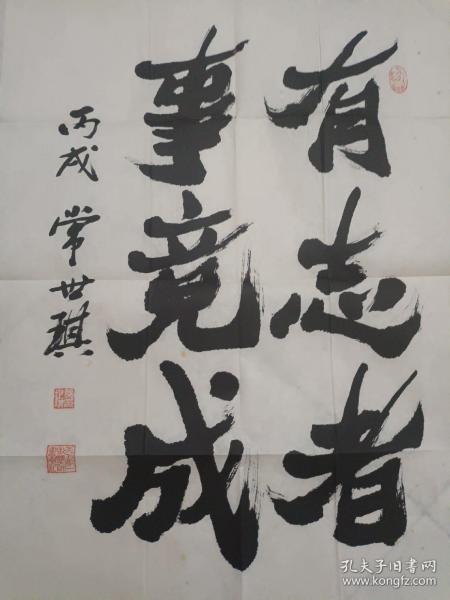 有志者
事竟成
丙戌 常世琪
孔夫子旧书网
www.kongfz.com